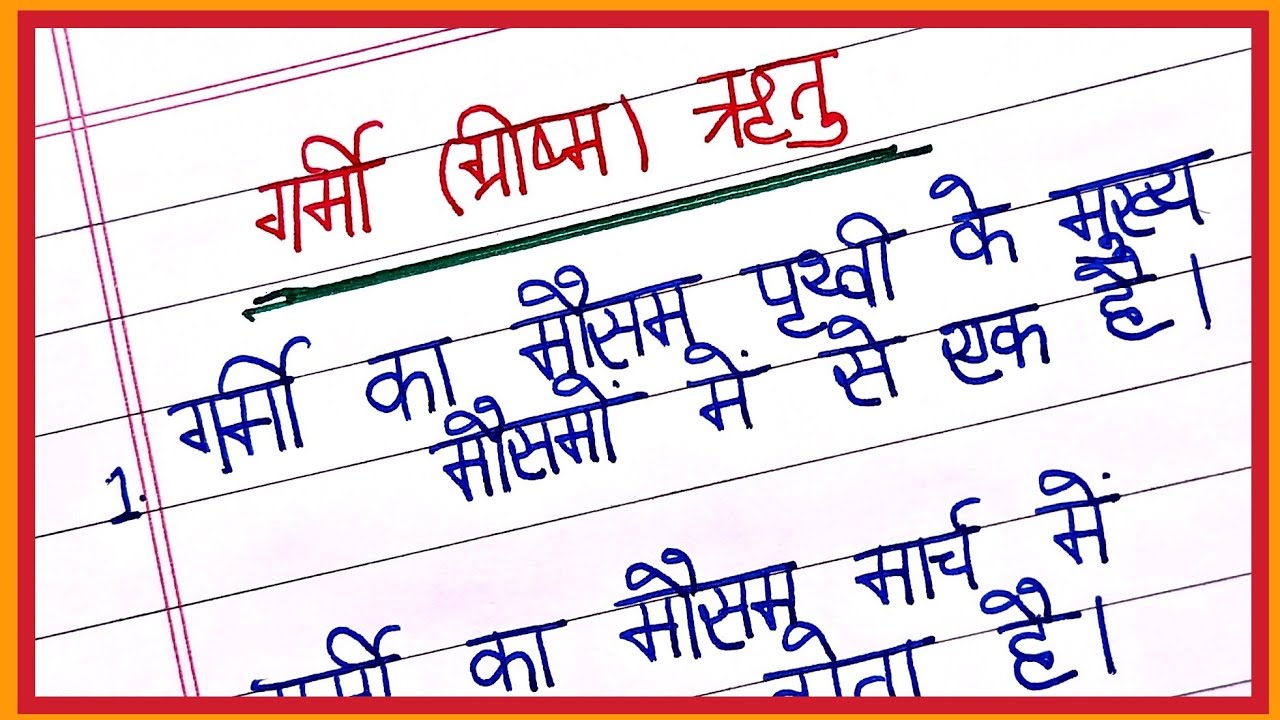 गर्मी (ग्रीष्म) ऋतु
1. गर्मी का मौसम पृथ्वी के मुख्य
मौसमों में से एक है।
गर्मी का मौसम मार्च में
होता है।